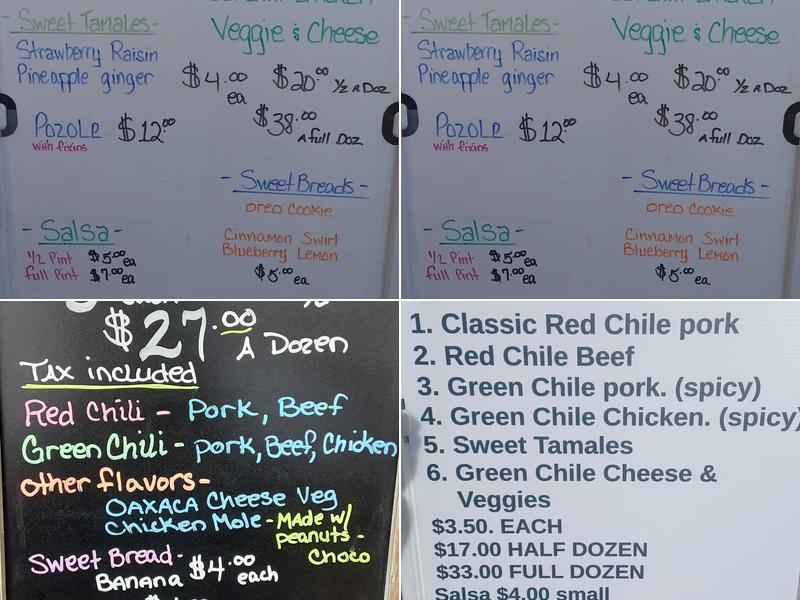 - Sweet Tamales -
Strawberry Raisin
Pineapple ginger
Veggie & Cheese
$4.00 ea
$20.00 1/2 A Doz
$38.00 A full Doz
Pozole $12.00
with fixins
- Sweet Breads -
Oreo Cookie
Cinnamon Swirl
Blueberry Lemon
$5.00 ea
- Salsa -
1/2 Pint $5.00 ea
full Pint $7.00 ea
- Sweet Tamales -
Strawberry Raisin
Pineapple ginger
Veggie & Cheese
$4.00 ea
$20.00 1/2 A Doz
$38.00 A full Doz
Pozole $12.00
with fixins
- Sweet Breads -
Oreo Cookie
Cinnamon Swirl
Blueberry Lemon
$5.00 ea
- Salsa -
1/2 Pint $5.00 ea
full Pint $7.00 ea
$27.00
A Dozen
Tax included
Red Chili - Pork, Beef
Green Chili - pork, Beef, Chicken
other flavors -
OAXACA Cheese Veg
Chicken Mole - MAde w/
peanuts -
Choco
Sweet Bread -
BANANA $4.00 each
1. Classic Red Chile pork
2. Red Chile Beef
3. Green Chile pork. (spicy)
4. Green Chile Chicken. (spicy)
5. Sweet Tamales
6. Green Chile Cheese &
Veggies
$3.50. EACH
$17.00 HALF DOZEN
$33.00 FULL DOZEN
Salsa $4.00 small